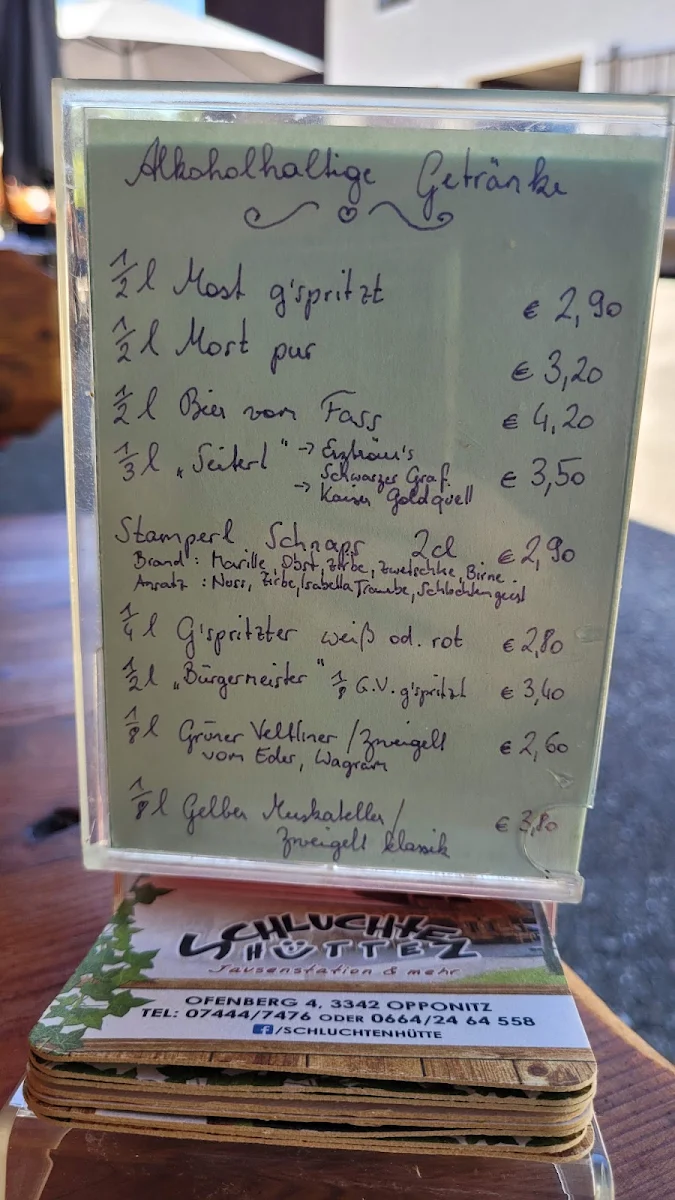 Alkoholhaltige Getränke
1/2 l Most g'spritzt € 2,90
1/2 l Most pur € 3,20
1/2 l Bier vom Fass € 4,20
1/3 l „Seiterl" → Erzbräu's
Schwarzer Graf € 3,50
→ Kaiser Goldquell
Stamperl Schnaps 2cl € 2,90
Brand : Marille, Obst, Zirbe, Zwetschke, Birne.
Ansatz : Nuss, Zirbe, Isabella Traube, Schluchtengeist
1/4 l G'spritzter weiß od. rot € 2,80
1/2 l „Bürgermeister" 1/8 G.V. g'spritzt € 3,40
1/8 l Grüner Veltliner / Zweigelt € 2,60
vom Eder, Wagram
1/8 l Gelber Muskateller / € 3,80
Zweigelt klassik
SCHLUCHTEN
HÜTTE
Jausenstation & mehr
OFENBERG 4, 3342 OPPONITZ
TEL: 07444/7476 ODER 0664/24 64 558
f/SCHLUCHTENHÜTTE